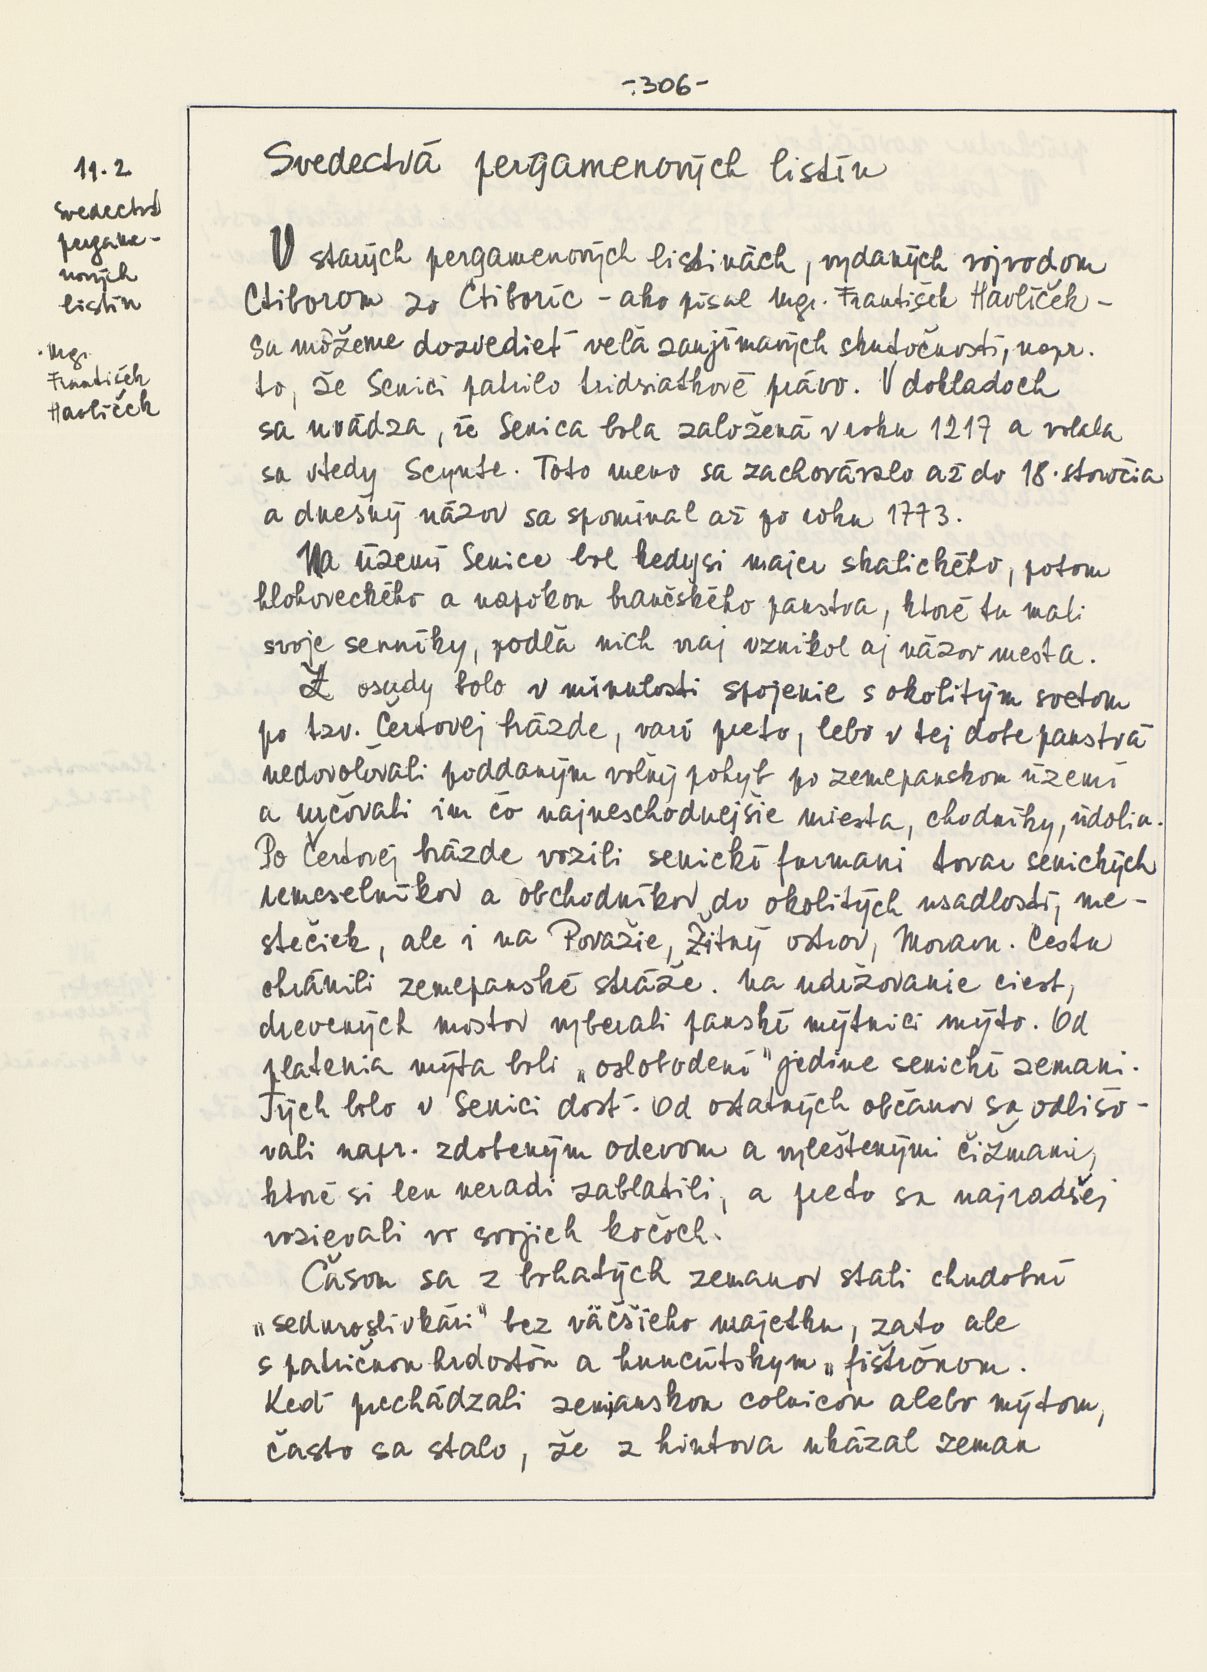 -306-
19.2
Svedectvá
pergame-
nových
listín
Mgr.
František
Havlíček
Svedectvá pergamenových listín
V starých pergamenových listinách, vydaných vojvodom
Ctiborom zo Ctiboríc - ako písal Mgr. František Havlíček -
sa môžeme dozvedieť veľa zaujímavých skutočností, napr.
to, že Senici patrilo tridsiatkové právo. V dokladoch
sa uvádza, že Senica bola založená v roku 1217 a volala
sa vtedy Scynte. Toto meno sa zachovávalo až do 18. storočia
a dnešný názov sa spomínal až po roku 1773.
Na území Senice bol kedysi majer skalického, potom
hlohoveckého a napokon brančského panstva, ktoré tu mali
svoje senníky, podľa nich vraj vznikol aj názov mesta.
Z osady bolo v minulosti spojenie s okolitým svetom
po tzv. Čertovej brázde, vari preto, lebo v tej dobe panstvá
nedovoľovali poddaným voľný pohyb po zemepanskom území
a určovali im čo najneschodnejšie miesta, chodníky, údolia.
Po Čertovej brázde vozili senickí furmani tovar senických
remeselníkov a obchodníkov do okolitých usadlostí, me-
stečiek, ale i na Považie, Žitný ostrov, Moravu. Cestu
chránili zemepanské stráže. Na udržovanie ciest,
drevených mostov vyberali panskí mýtnici mýto. Od
platenia mýta boli „oslobodení" jedine senickí zemani.
Tých bolo v Senici dosť. Od ostatných občanov sa odlišo-
vali napr. zdobeným odevom a vyleštenými čižmami,
ktoré si len neradi zablatili, a preto sa najradšej
vozievali vo svojich kočoch.
Časom sa z bohatých zemanov stali chudobní
„sedmoslivkári" bez väčšieho majetku, zato ale
s patričnou hrdosťou a huncútskym „fištrónom.
Keď prechádzali zemianskou colnicou alebo mýtom,
často sa stalo, že z hintova ukázal zeman